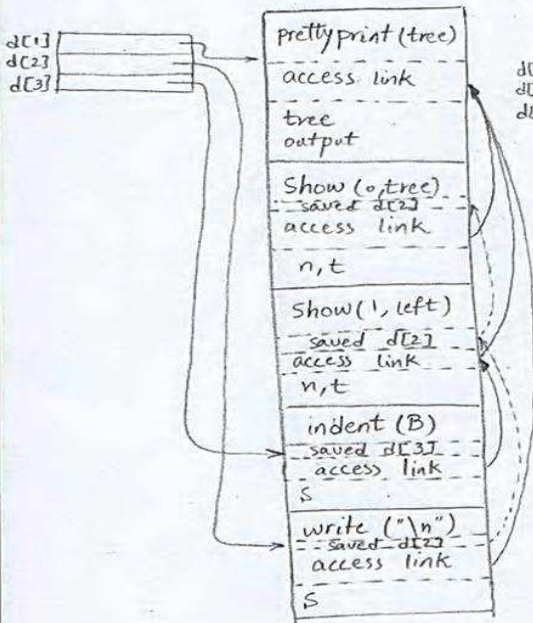 d[1]
d[2]
d[3]
prettyprint (tree)
access link
tree
output
Show (0, tree)
saved d[2]
access link
n, t
Show (1, left)
saved d[2]
access link
n, t
indent (B)
saved d[3]
access link
S
write ("\n")
saved d[2]
access link
S
d[
d[
d[